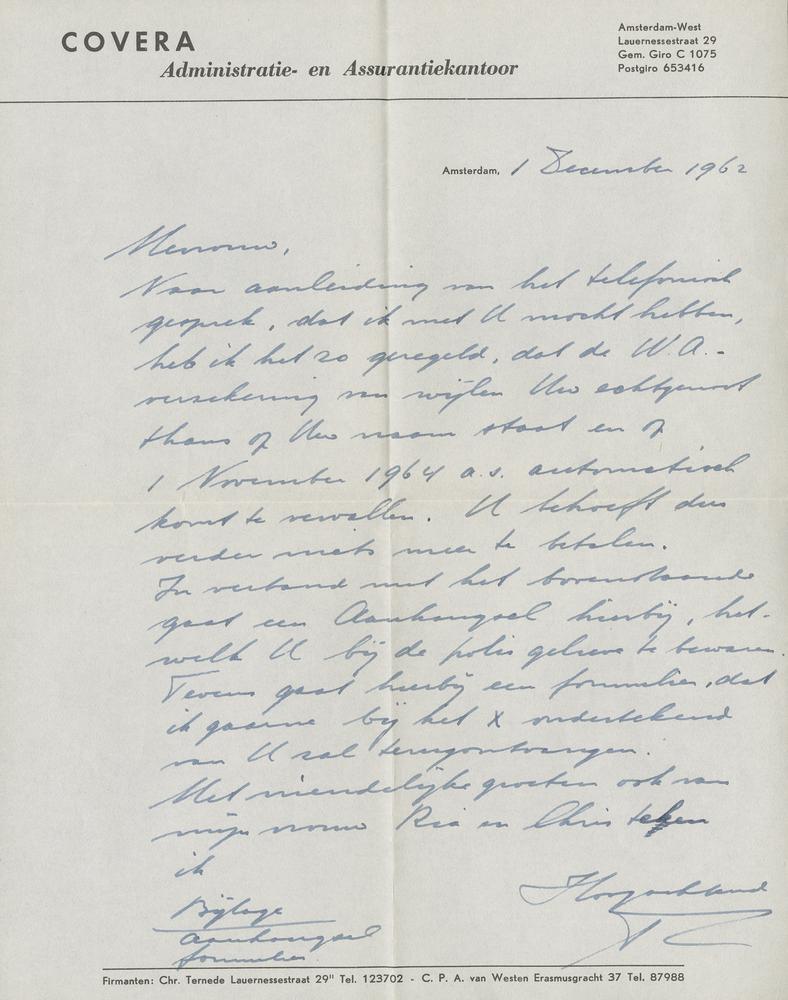 COVERA
Administratie- en Assurantiekantoor
Amsterdam-West
Lauernessestraat 29
Gem. Giro C 1075
Postgiro 653416
Amsterdam, 1 December 1962
Mevrouw,
Naar aanleiding van het telefonisch
gesprek, dat ik met U mocht hebben,
heb ik het zo geregeld, dat de W.A.-
verzekering van wijlen Uw echtgenoot
thans op Uw naam staat en op
1 November 1964 a.s. automatisch
komt te vervallen. U behoeft dus
verder niets meer te betalen.
In verband met het bovenstaande
gaat een Aanhangsel hierbij, het-
welk U bij de polis gelieve te bewaren.
Tevens gaat hierbij een formulier, dat
ik gaarne bij het X ondertekend
van U zal terugontvangen.
Met vriendelijke groeten ook van
mijn vrouw Ria en Chris teken
ik
Hoogachtend
Bijlage
aanhangsel
formulier
Firmanten: Chr. Ternede Lauernessestraat 29" Tel. 123702 - C. P. A. van Westen Erasmusgracht 37 Tel. 87988